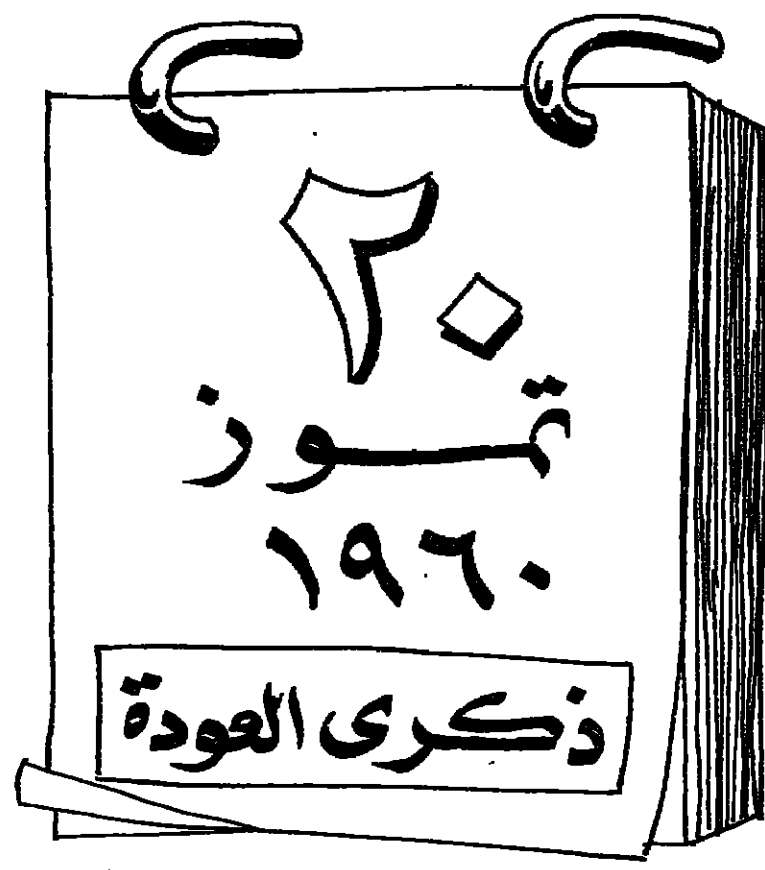 ٢٠
تموز
١٩٦٠
ذكرى العودة